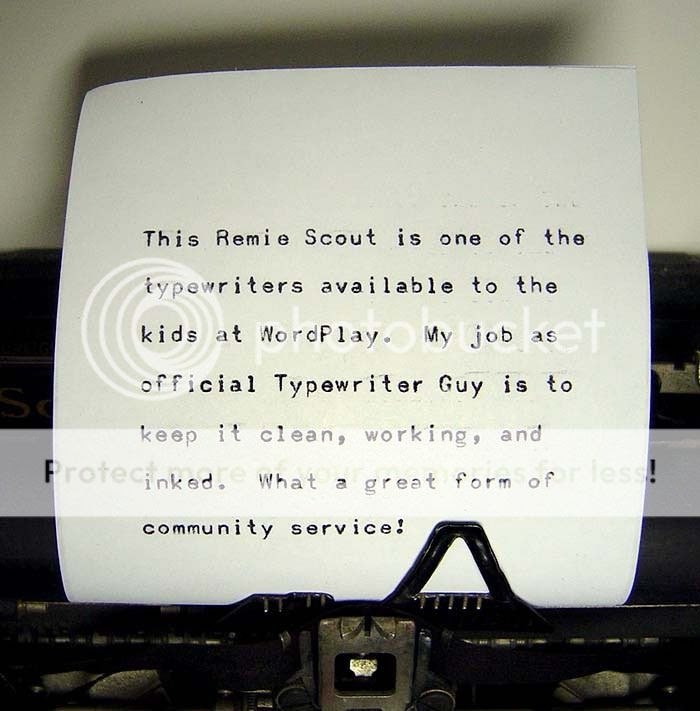 This Remie Scout is one of the
typewriters available to the
kids at WordPlay.  My job as
official Typewriter Guy is to
keep it clean, working, and
inked.  What a great form of
community service!
photobucket
Protect more of your memories for less!